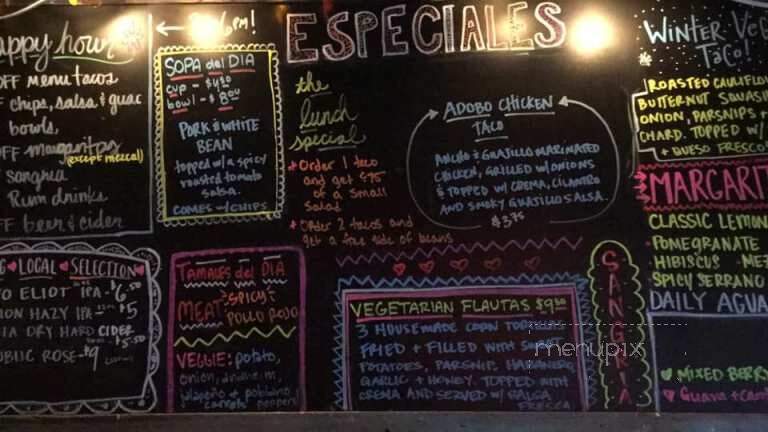 ESPECIALES
appy hour
← 6PM!
OFF menu tacos
chips, salsa & guac
bowls
OFF margaritas
(except mezcal)
sangria
Rum drinks
OFF beer & cider
SOPA del DIA
cup - $4.50
bowl - $8.00
PORK & WHITE
BEAN
topped w/ a spicy
roasted tomato
salsa.
COMES w/ CHIPS
the
lunch
special
Order 1 taco
and get
of a small
Salad
Order 2 tacos and
get a free side of beans
ADOBO CHICKEN
TACO
ANCHO & GUAJILLO MARINATED
CHICKEN, GRILLED w/ ONIONS
& TOPPED w/ CREMA, CILANTRO
AND SMOKY GUAJILLO SALSA.
$3.75
WINTER VEG
TACO!
ROASTED CAULIFLOW
BUTTERNUT SQUASH
ONION, PARSNIPS +
CHARD. TOPPED w/
+ QUESO FRESCO
MARGARIT
CLASSIC LEMON
POMEGRANATE
HIBISCUS MEZ
SPICY SERRANO
DAILY AGUA
MIXED BERRY
Guava +
LOCAL SELECTION
O ELIOT IPA - $6.50
ON HAZY IPA - $5
IA DRY HARD CIDER
$5.50
UBLIC ROSE - $9
TAMALES del DIA
MEAT: SPICY
POLLO ROJO
VEGGIE: potato,
onion,
jalapeño & poblano
carrots peppers
VEGETARIAN FLAUTAS $9.50
3 HOUSEMADE CORN TORTILLAS
FRIED + FILLED WITH SWEET
POTATOES, PARSNIP, HABANERO,
GARLIC + HONEY. TOPPED WITH
CREMA AND SERVED w/ SALSA
FRESCA
SANGRIA
menupix